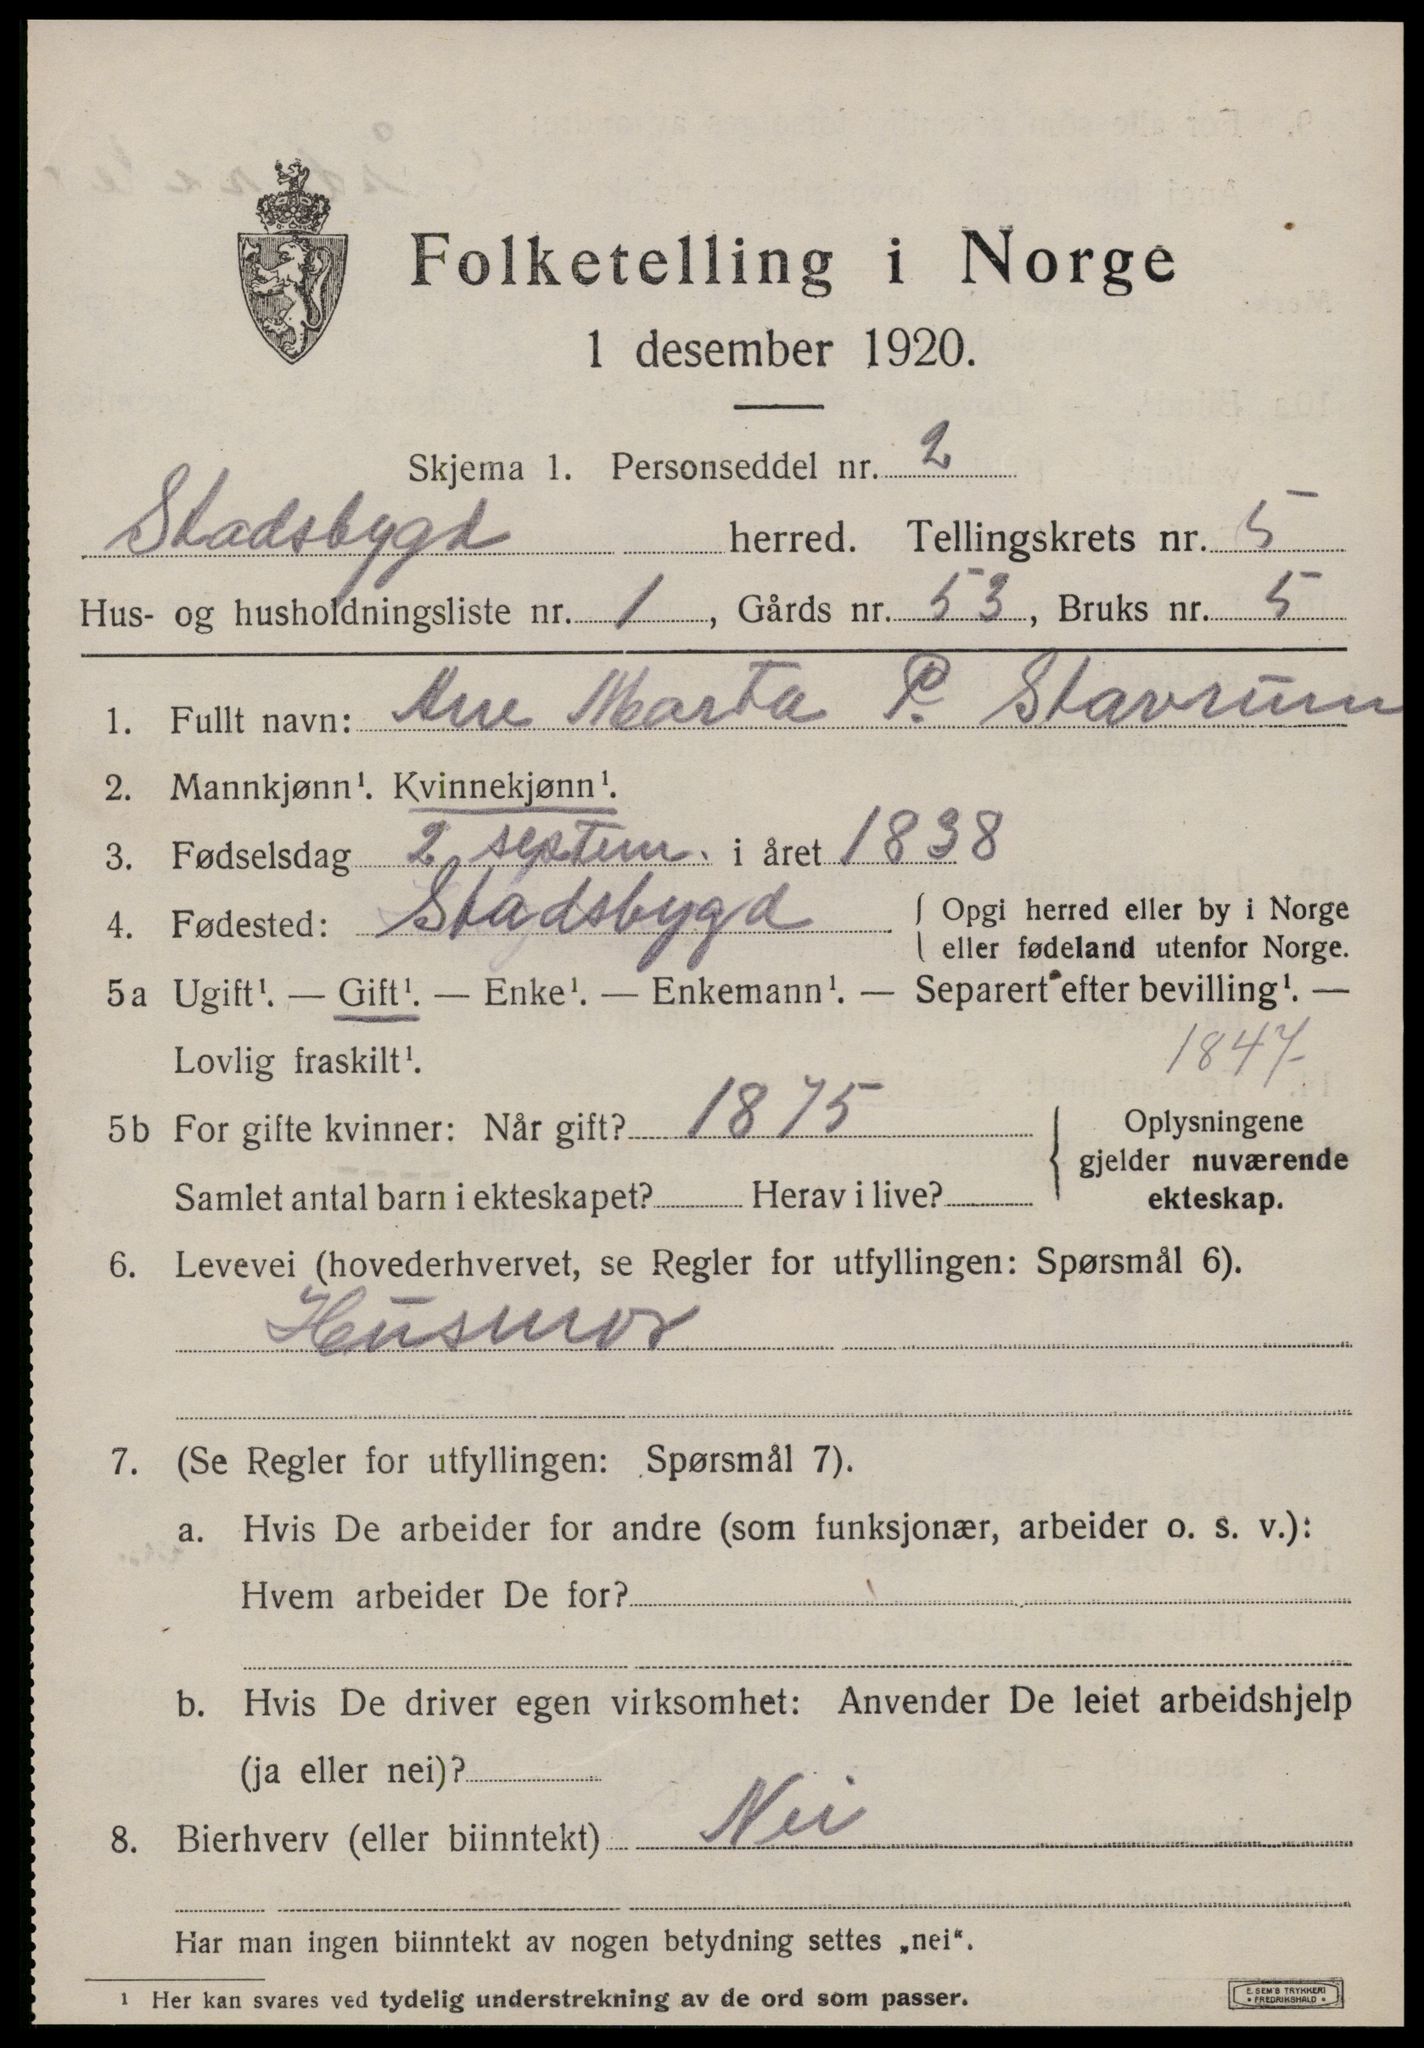 Folketelling i Norge
1 desember 1920.
Skjema 1. Personseddel nr. 2
Stadsbygd herred. Tellingskrets nr. 5
Hus- og husholdningsliste nr. 1, Gårds nr. 53, Bruks nr. 5
1. Fullt navn: Ane Marta P. Stavrum
2. Mannkjønn¹. Kvinnekjønn¹.
3. Fødselsdag 2 septem. i året 1838
4. Fødested: Stadsbygd { Opgi herred eller by i Norge
eller fødeland utenfor Norge.
5a Ugift¹. — Gift¹. — Enke¹. — Enkemann¹. — Separert efter bevilling¹. —
Lovlig fraskilt¹. 1847
5b For gifte kvinner: Når gift? 1875
Samlet antal barn i ekteskapet? Herav i live?
{ Oplysningene
gjelder nuværende
ekteskap.
6. Levevei (hovederhvervet, se Regler for utfyllingen: Spørsmål 6).
Husmor
7. (Se Regler for utfyllingen: Spørsmål 7).
a. Hvis De arbeider for andre (som funksjonær, arbeider o. s. v.):
Hvem arbeider De for?
b. Hvis De driver egen virksomhet: Anvender De leiet arbeidshjelp
(ja eller nei)?
8. Bierhverv (eller biinntekt) Nei
Har man ingen biinntekt av nogen betydning settes „nei“.
¹ Her kan svares ved tydelig understrekning av de ord som passer.
E. SEM'S TRYKKERI
• FREDRIKSHALD •